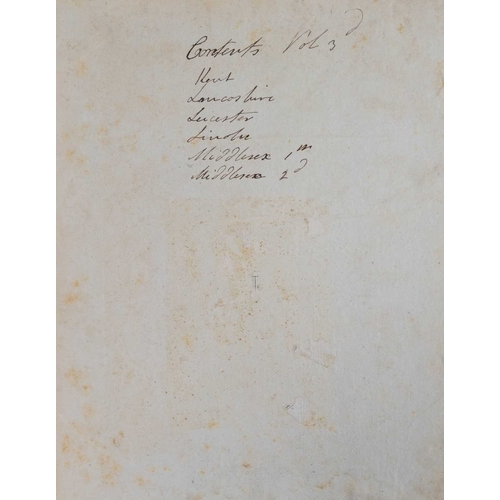 Contents Vol 3d
Kent
Lancashire
Leicester
Lincoln
Middlesex 1m
Middlesex 2d